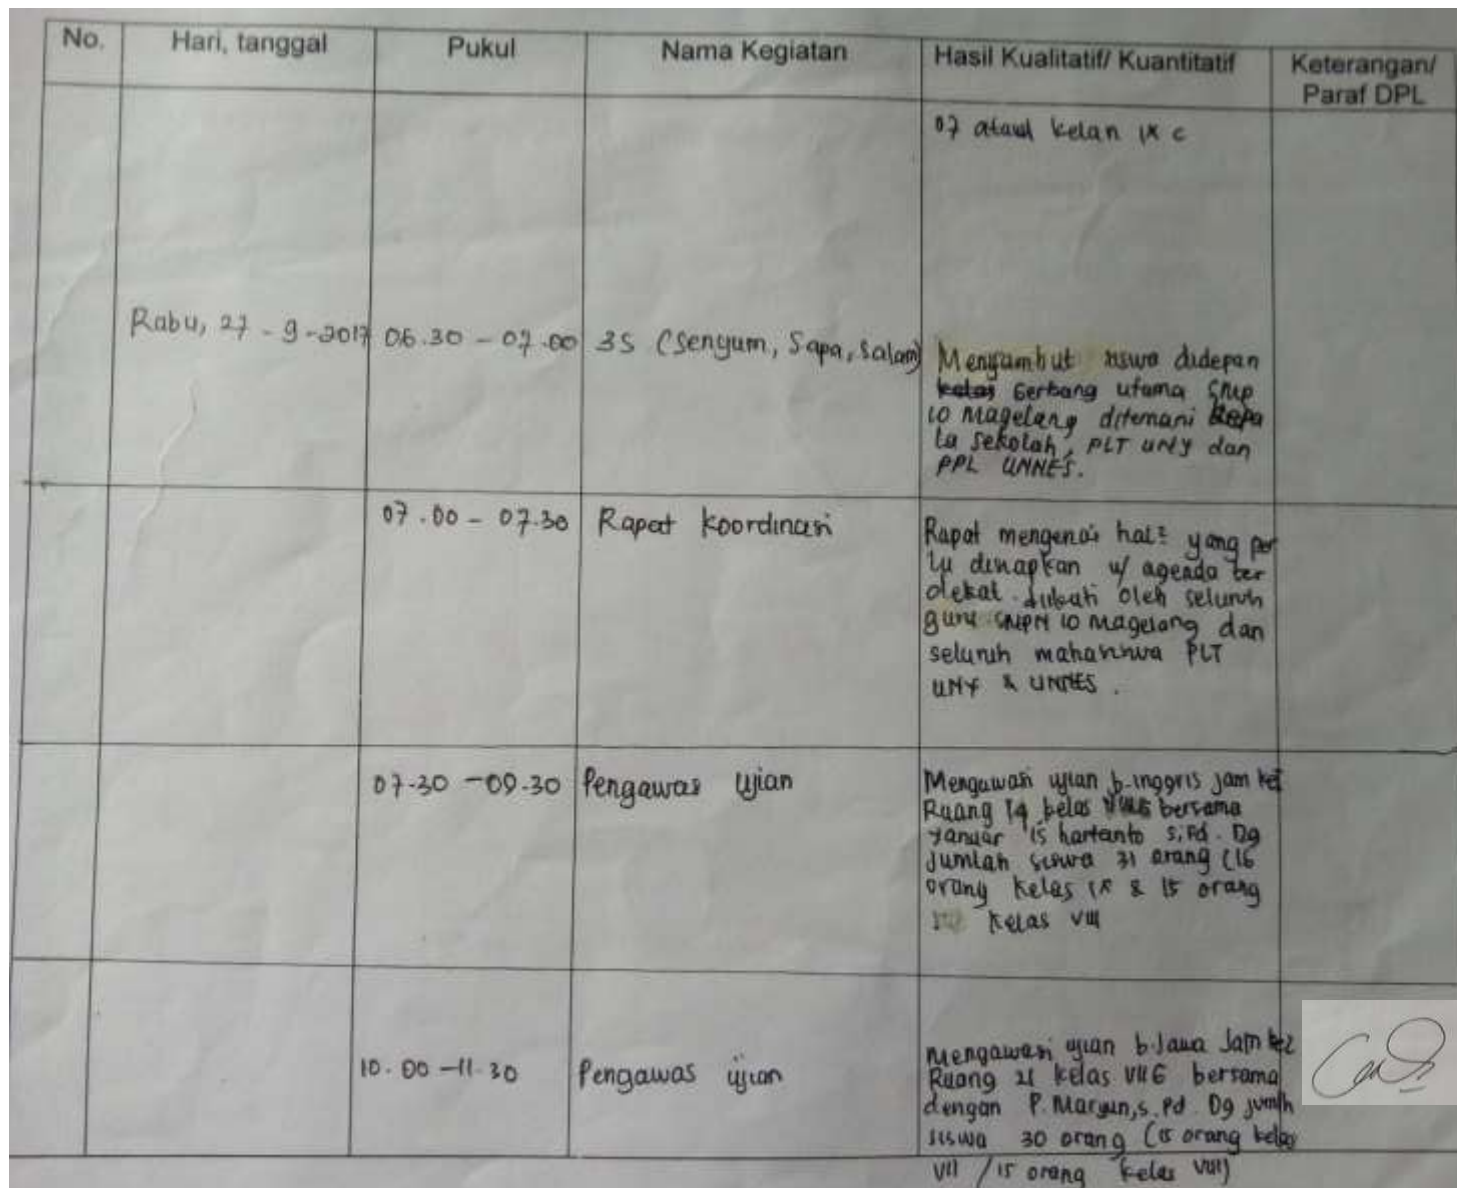 No. Hari, tanggal Pukul Nama Kegiatan Hasil Kualitatif/ Kuantitatif Keterangan/
Paraf DPL
07 kelas IX C
Rabu, 27 - 9 - 2017 06.30 - 07.00 3S (Senyum, Sapa, Salam)
Menyambut siswa didepan
kelas Gerbang utama SMP
10 Magelang ditemani Kepa
la sekolah, PLT UNY dan
PPL UNNES.
07.00 - 07.30 Rapat koordinasi
Rapat mengenai hal² yang per
lu disiapkan u/ agenda ter
dekat. diikuti oleh seluruh
guru SMPN 10 Magelang dan
seluruh mahasiswa PLT
UNY & UNNES.
07.30 - 09.30 Pengawas ujian
Mengawasi ujian b.inggris jam ke1
Ruang 19 kelas bersama
yanuar hartanto S.Pd. Dg
jumlah siswa 31 orang (16
orang kelas IX & 15 orang
kelas VIII
10.00 - 11.30 Pengawas ujian
Mengawasi ujian b.Jawa Jam ke2
Ruang 21 kelas bersama
dengan P. S.Pd Dg jumlh
siswa 30 orang (15 orang kelas
VII / 15 orang kelas VIII)